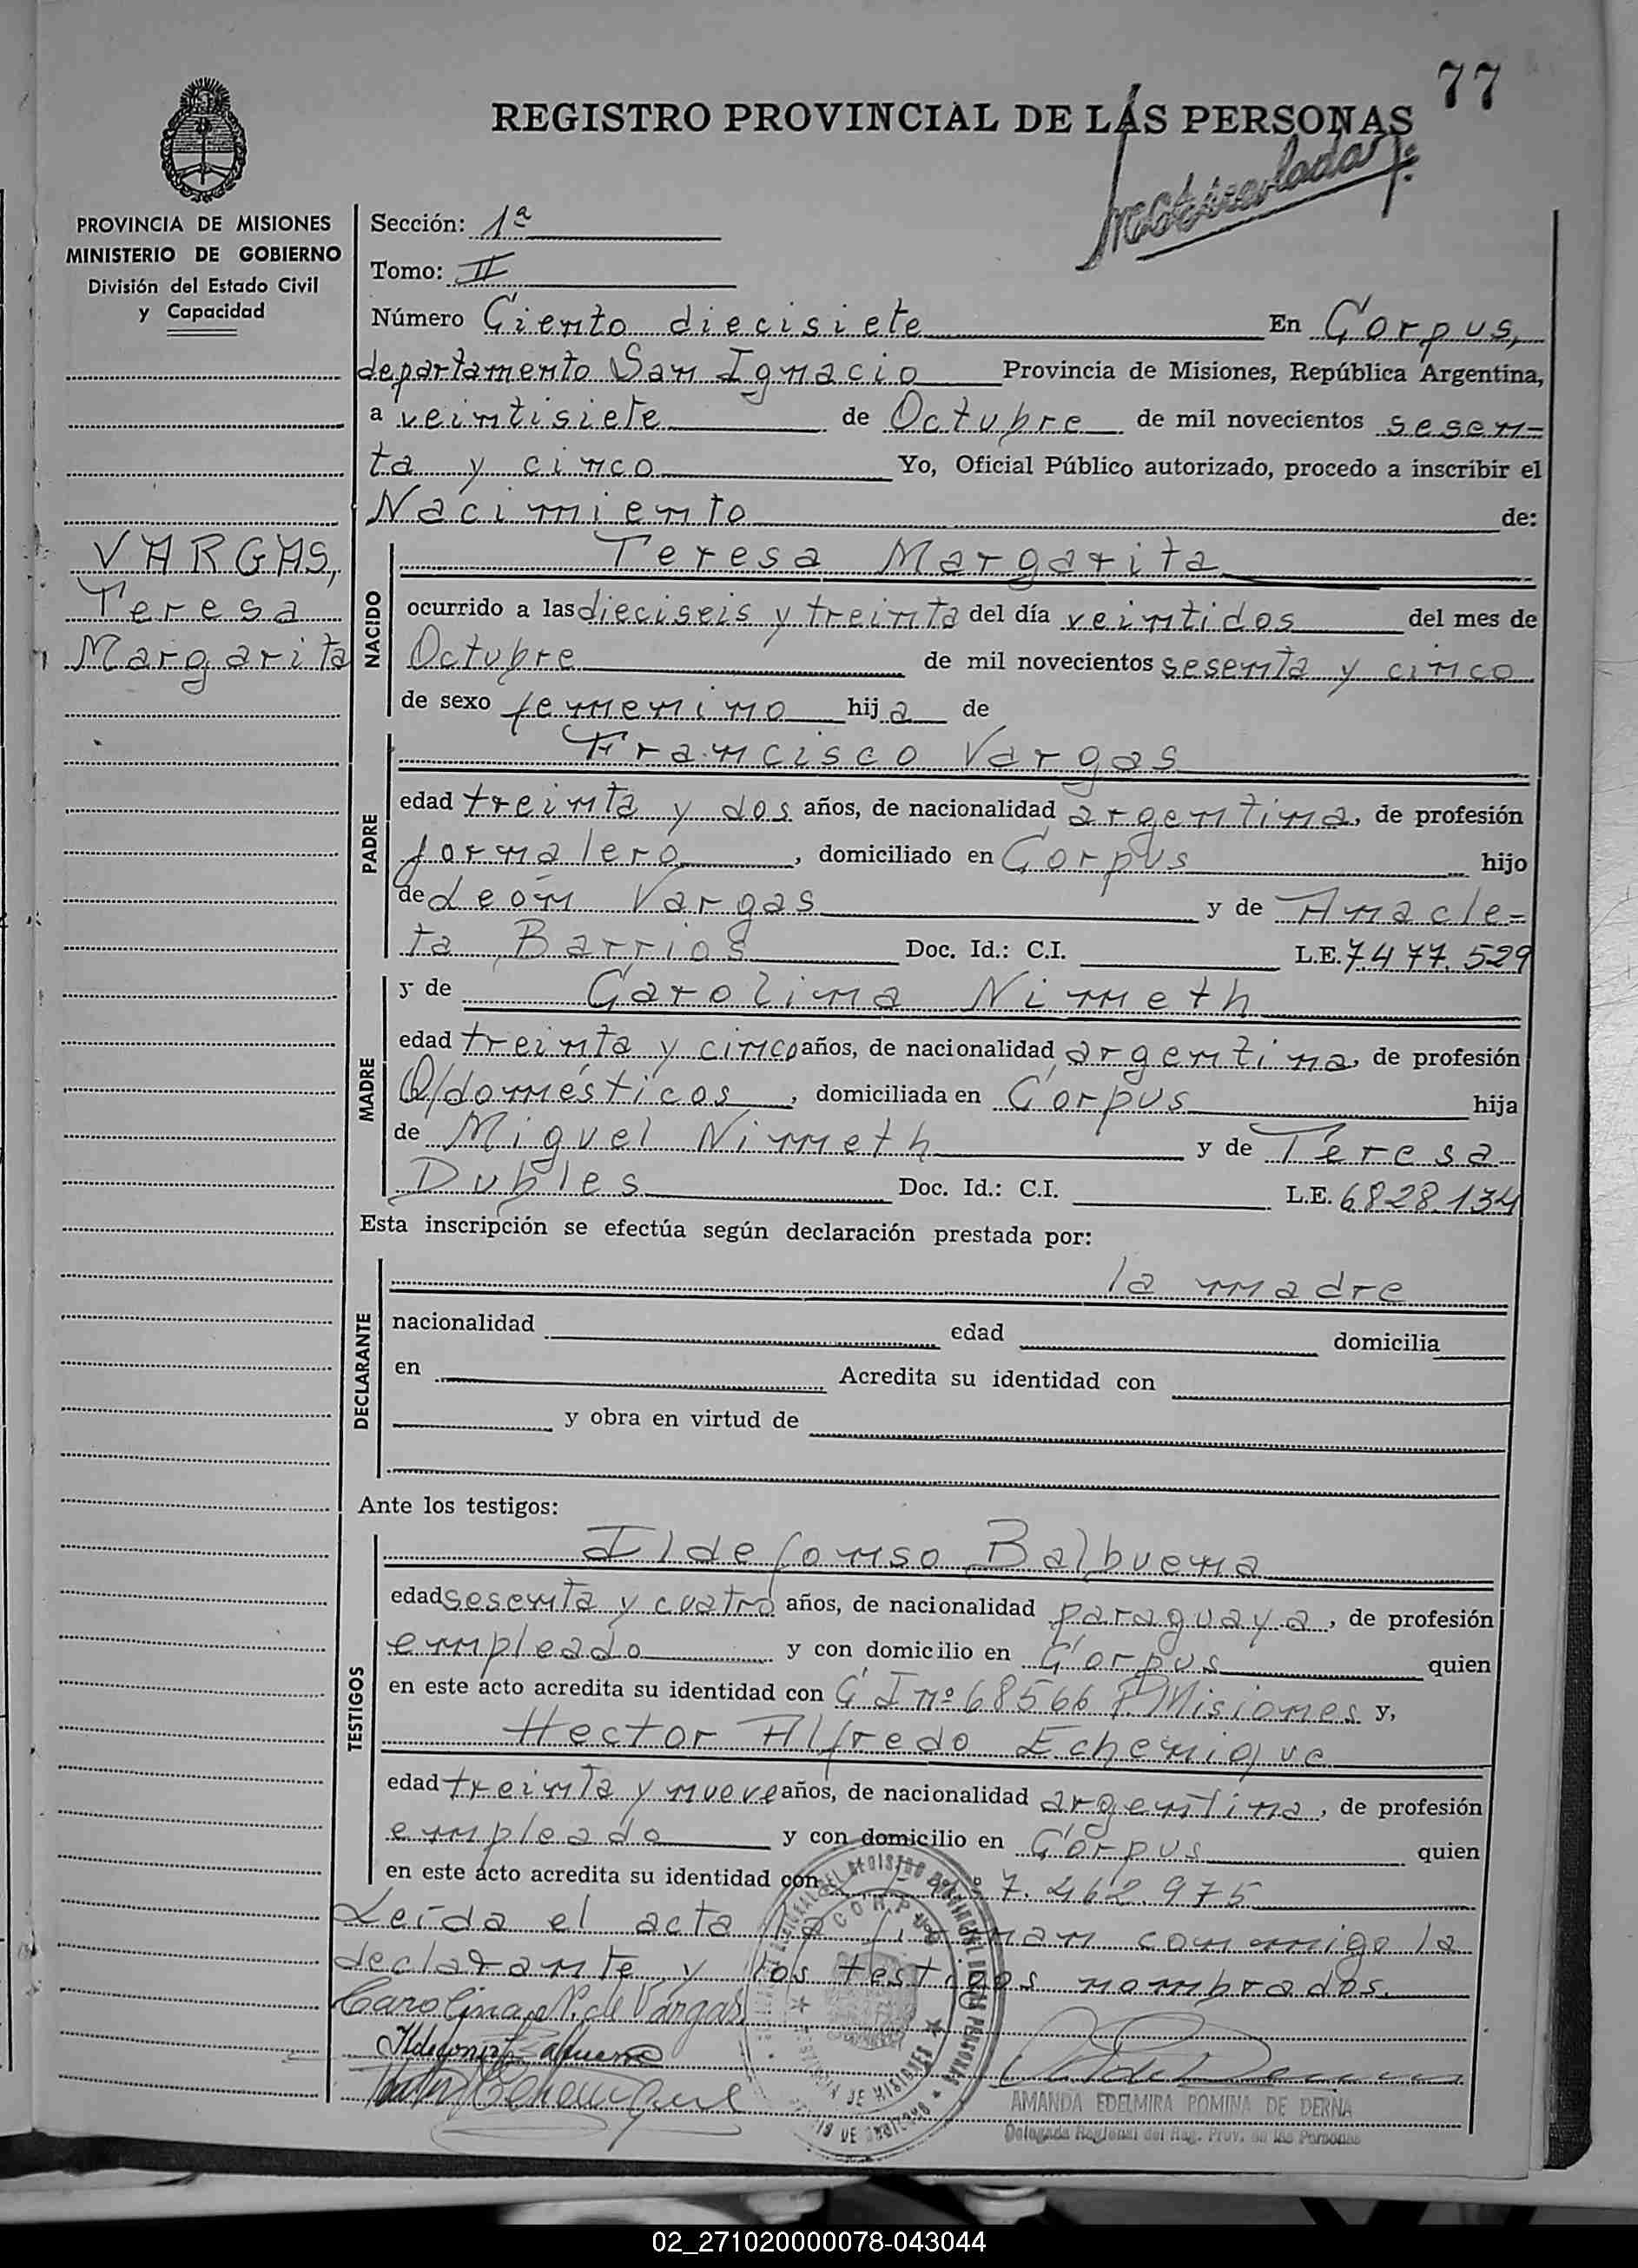 77
REGISTRO PROVINCIAL DE LAS PERSONAS
Matriculada
PROVINCIA DE MISIONES
MINISTERIO DE GOBIERNO
División del Estado Civil
y Capacidad
Sección: 1ª
Tomo: II
Número Ciento diecisiete En Corpus,
departamento San Ignacio Provincia de Misiones, República Argentina,
a veintisiete de Octubre de mil novecientos sesen=
ta y cinco Yo, Oficial Público autorizado, procedo a inscribir el
Nacimiento de:
VARGAS,
Teresa
Margarita
NACIDO
Teresa Margarita
ocurrido a las dieciseis y treinta del día veintidos del mes de
Octubre de mil novecientos sesenta y cinco
de sexo femenino hija de
PADRE
Francisco Vargas
edad treinta y dos años, de nacionalidad argentina, de profesión
jornalero, domiciliado en Corpus hijo
de León Vargas y de Anacle=
ta Barrios Doc. Id.: C.I. L.E. 7.477.529
MADRE
y de Carolina Nimeth
edad treinta y cinco años, de nacionalidad argentina, de profesión
Q/domésticos, domiciliada en Corpus hija
de Miguel Nimeth y de Teresa
Dubles Doc. Id.: C.I. L.E. 6.828.134
Esta inscripción se efectúa según declaración prestada por:
DECLARANTE
la madre
nacionalidad edad domicilia
en Acredita su identidad con
y obra en virtud de
Ante los testigos:
TESTIGOS
Ildefonso Balbuena
edad sesenta y cuatro años, de nacionalidad paraguaya, de profesión
empleado y con domicilio en Corpus quien
en este acto acredita su identidad con C I nº 68566 P. Misiones y,
Hector Alfredo Echenique
edad treinta y nueve años, de nacionalidad argentina, de profesión
empleado y con domicilio en Corpus quien
en este acto acredita su identidad con nº 7.462.975
Leída el acta la firman conmigo la
declarante y los testigos nombrados.
Carolina N. de Vargas
AMANDA EDELMIRA POMINA DE DERNA
Delegada Regional del Reg. Prov. de las Personas
02_271020000078-043044